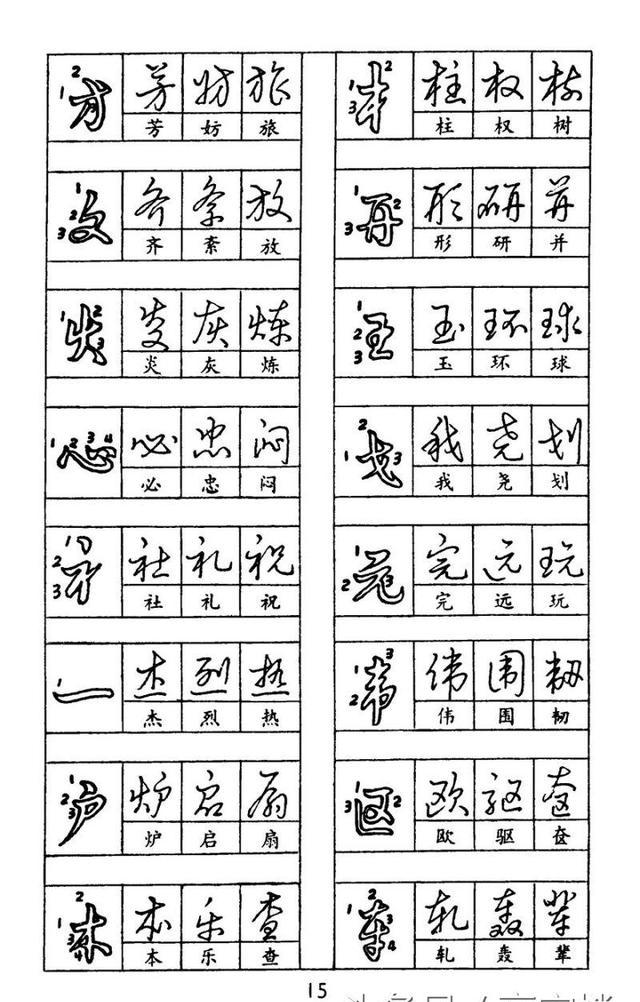 方 芳 妨 旅
芳 妨 旅
文 齐 紊 放
齐 紊 放
火 炎 灰 炼
炎 灰 炼
心 必 忠 闷
必 忠 闷
社 礼 祝
社 礼 祝
一 杰 烈 热
杰 烈 热
户 炉 启 扇
炉 启 扇
木 本 乐 查
本 乐 查
木 柱 权 树
柱 权 树
形 研 并
形 研 并
王 玉 环 球
玉 环 球
戈 我 尧 划
我 尧 划
元 完 远 玩
完 远 玩
韦 伟 围 韧
伟 围 韧
区 欧 驱 奁
欧 驱 奁
车 轧 轰 辇
轧 轰 辇
15